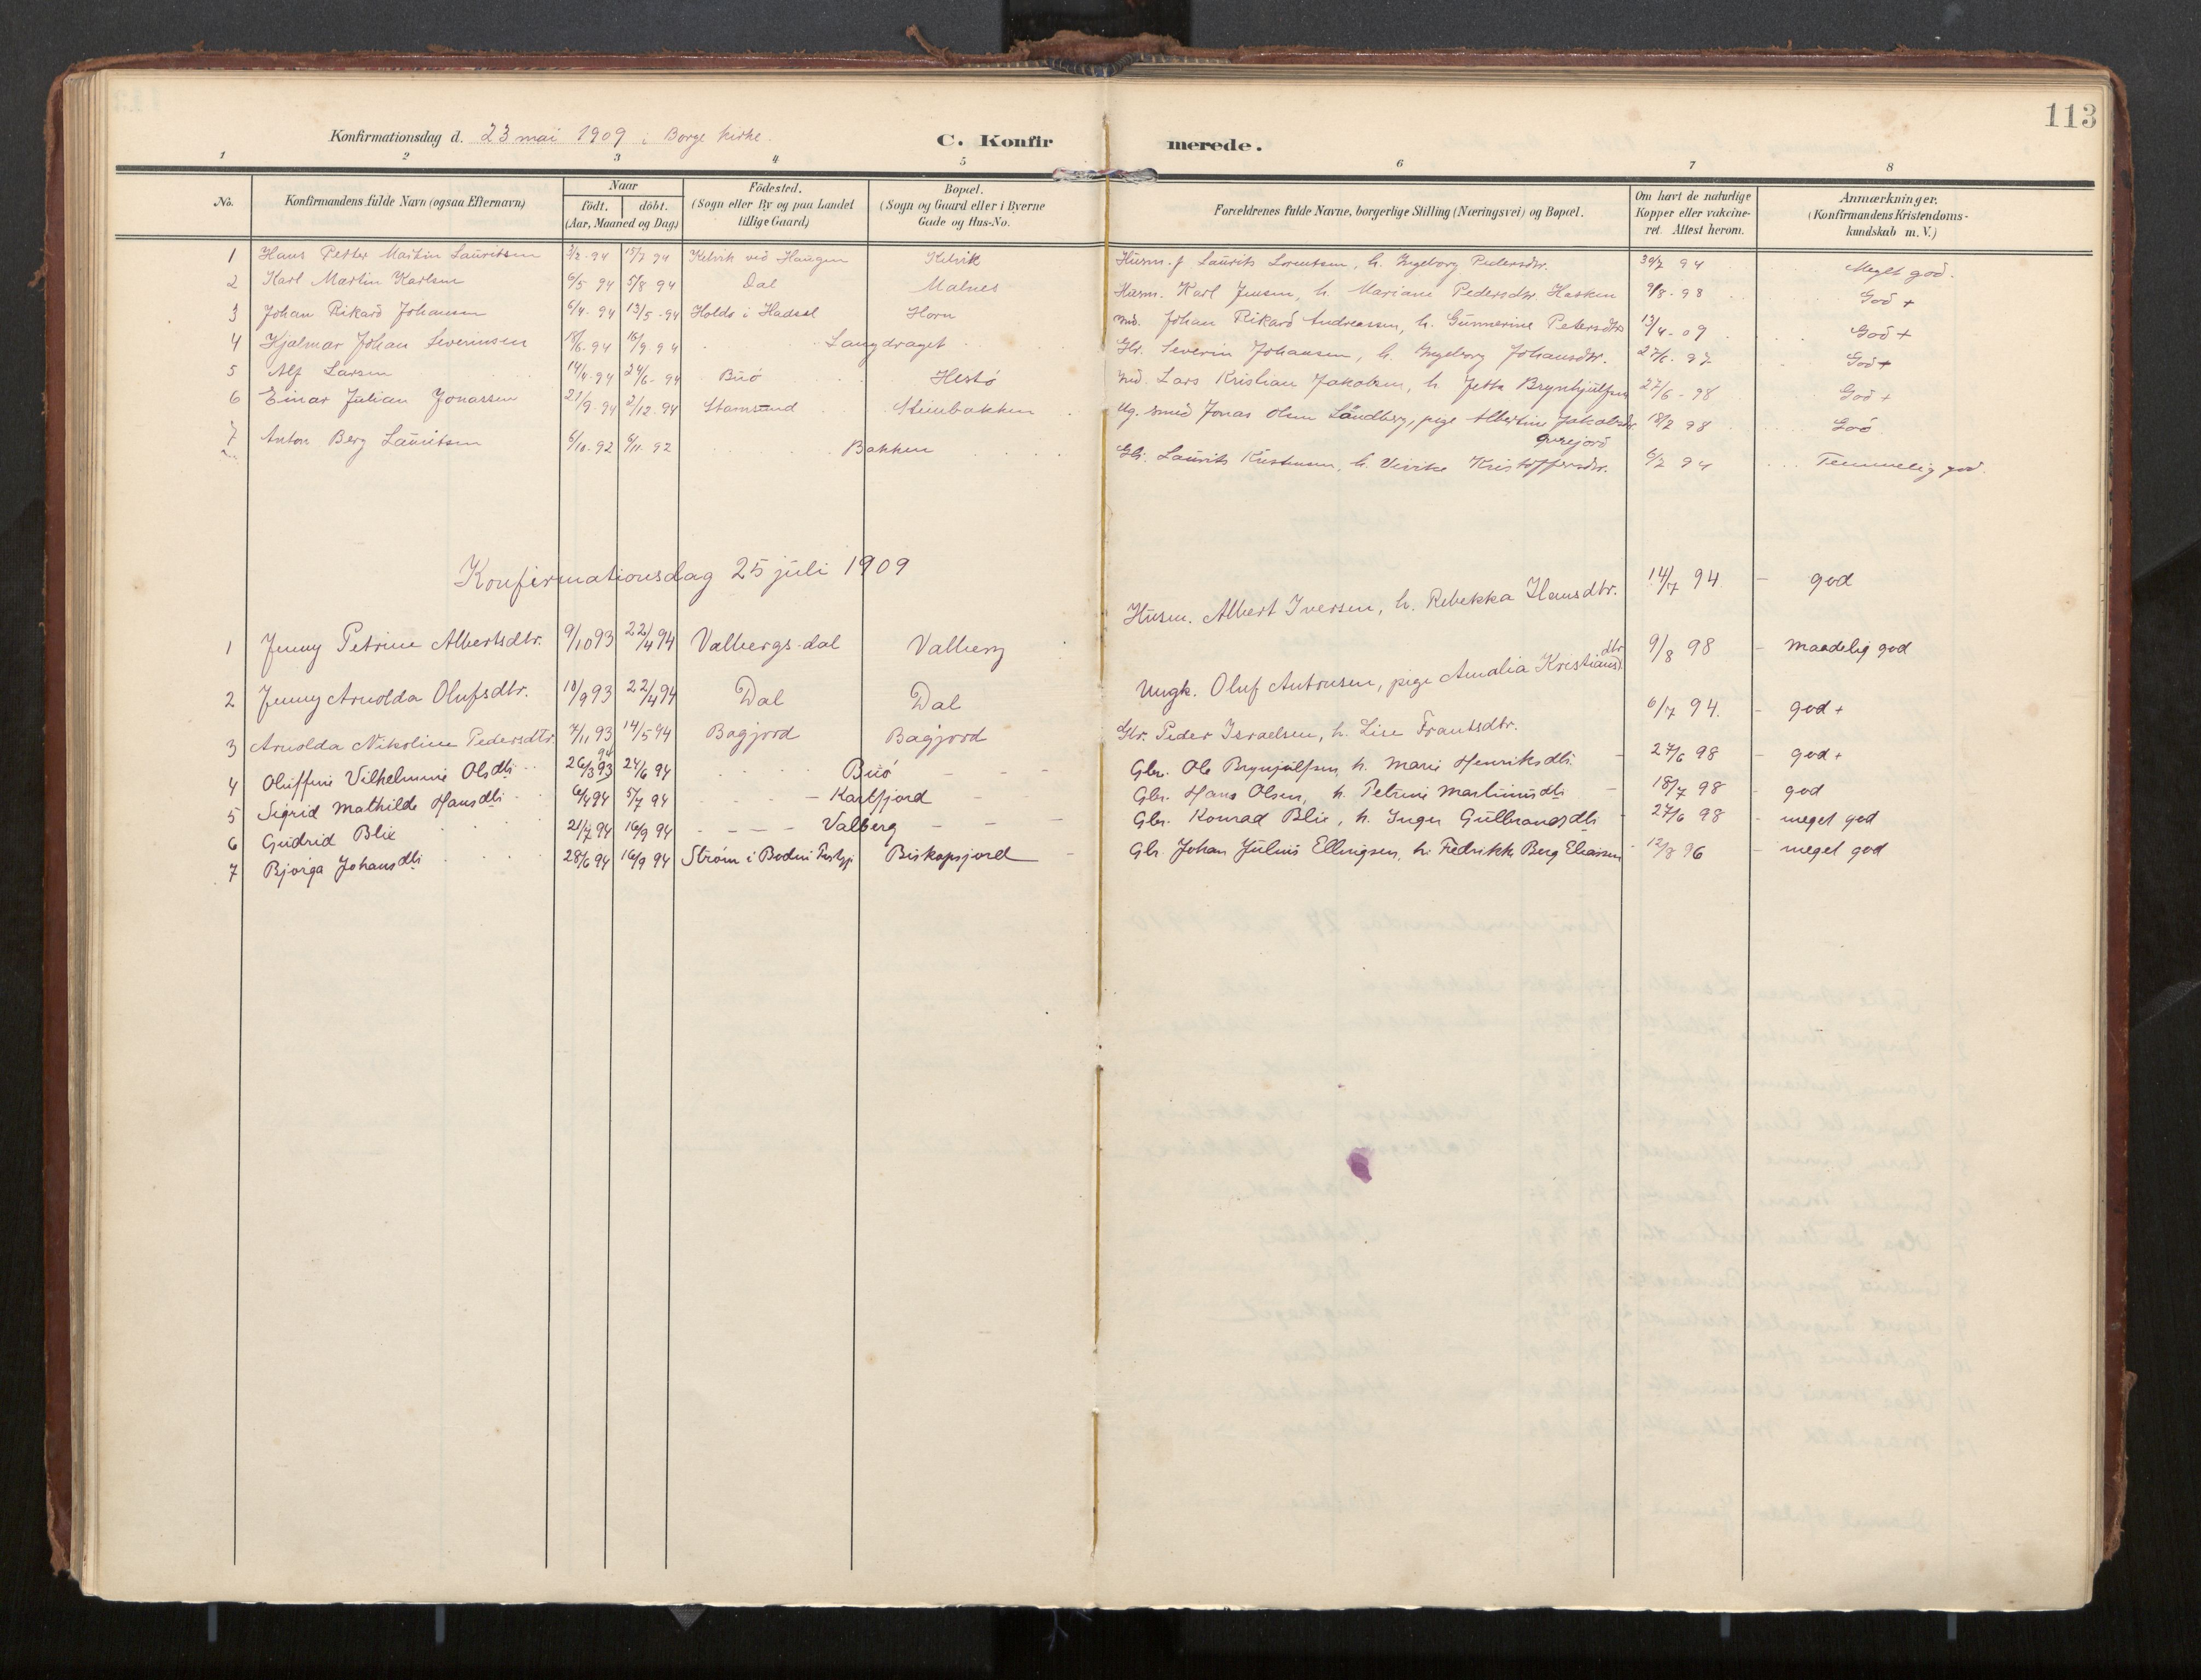 113
Konfirmationsdag d. 23 mai 1909 i Borge kirke. C. Konfirmerede.
1 2 3 4 5 6 7 8
No. Konfirmandens fulde Navn (ogsaa Efternavn) Naar födt. döbt. (Aar, Maaned og Dag) Födested. (Sogn eller By og paa Landet tillige Gaard) Bopæl. (Sogn og Gaard eller i Byerne Gade og Hus-No. Forældrenes fulde Navne, borgerlige Stilling (Næringsvei) og Bopæl. Om havt de naturlige Kopper eller vakcineret. Attest herom. Anmærkninger. (Konfirmandens Kristendomskundskab m. V.)
1 Hans Petter Martin Lauritsen 94 15/7 94 Kelvik ved Haugen Kelvik Husm. f Laurits Lorentsen, h. Ingeborg Pedersdtr. 30/7 94 Meget god.
2 Karl Martin Karlsen 6/5 94 5/8 94 Dal Malnes Husm. Karl Jensen, h. Mariane Pedersdtr. 9/8-98 God +
3 Johan Rikard Johansen 6/4-94 13/5-94 Holds i Hadsel Horn Ind. Johan Rikard Andreassen, h. Gunnerine Petersdtr 13/4-09 God +
4 Hjalmar Johan Severinsen 18/6-94 16/9 94 Langdraget Gbr. Severin Johansen, h. Ingeborg Johansdtr. 27/6-97 God +
5 Alf Larsen 14/4-94 24/6-94 Buö Hestö Ind. Lars Kristian Jakobsen, h Jetta Brynhjülfsen 27/6-98 God +
6 Einar Julian Jonassen 21/9-94 2/12-94 Stamsund Steinbakken Ug. smed Jonas Olsen Landberg, pige Albertine Jakobsdtr. 18/7 98 God
7 Anton Berg Lauritsen 6/10-92 6/11-92 Bakken Gbr. Laurits Kristensen, h. Kristoffersdtr. 6/7 94 Temmelig god.
Konfirmationsdag 25 juli 1909
1 Jenny Petrine Albertsdtr. 9/10 93 22/4 94 Valbergs-dal Valberg Husm. Albert Iversen, h. Rebekka Hansdtr. 14/7 94 - god
2 Jenny Arnolda Olufsdtr. 10/9 93 22/4 94 Dal Dal Ungk. Oluf Antonsen, pige Amalia Kristiansdtr 9/8 98 - maadelig god
3 Arnolda Nikoline Pedersdtr. 7/11 93 14/5 94 Bagjord Bagjord Gbr. Peder Israelsen, h. Lise Frantsdtr. 6/7 94. - god +
4 Oluffine Vilhelmine Olsdtr 26/3 93 94 24/6 94 Buö Gbr. Ole Brynjulfsen, h. Marie Henriksdtr. 27/6 98 - god +
5 Sigrid Mathilde Hansdtr 6/4 94 5/7 94 Kartfjord Gbr. Hans Olsen, h. Petrine Martinusdtr 18/7 98 - god
6 Gudrid Blix 21/7 94 16/9 94 Valberg Gbr. Konrad Blix, h. Inger Gulbrandsdtr 27/6 98 - meget god
7 Bjorga Johansdtr 28/6 94 16/9 94 Ström i Bodin Prestgj Biskopsjord Gbr. Johan Julius Ellingsen, h. Fredrikke Berg Eliassen 12/8 96 - meget god